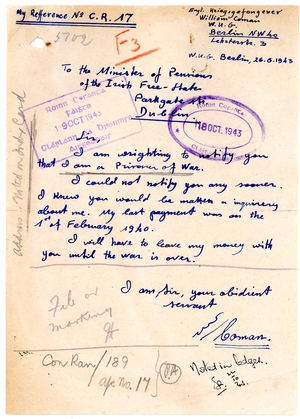 My Reference No C.R. 17
Engl. Kriegsgefangener
William Coman
W.U.G.
Berlin NW 40
5702
F3
W.U.G. Berlin, 26.6.1943
To the Minister of Pensions
of the Irish Free State
Parkgate St
Dublin.
Roinn Cosanta
19 OCT 1943
Roinn Cosanta
18 OCT. 1943
Sir,
I am wrighting to notify you
that I am a Prisoner of War.
I could not notify you any sooner.
I knew you would be matken a inquirery
about me. My last payment was on the
1st of February 1940.
I will have to leave my money with
you until the war is over.
I am Sir, your abidient
servant
Coman.
Address: Noted on Indey Card
File or
marking
Con Ran/189
Noted in ledger.